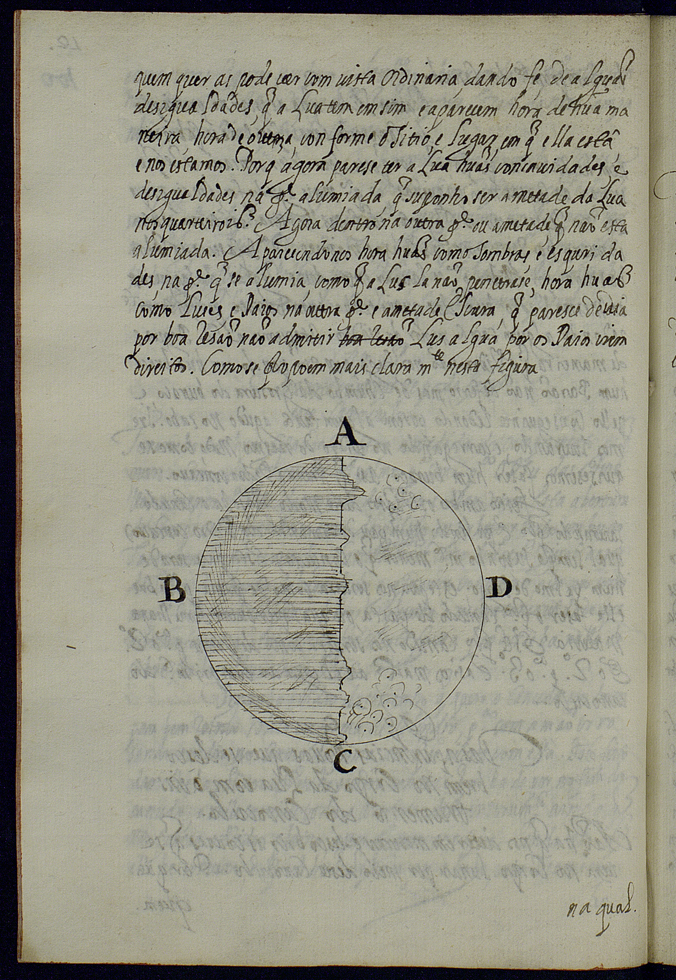 quem quer as pode ver com vista ordinaria dando fe de alguãs
desigualdades q̃ a Lua tem em sim e aparecem hora de hũa ma
neira hora de outra conforme o Sitio e Lugar em q̃ ella está
e nos estamos. Porq̃ agora parese ter a Lua huãs concavidades e
desigualdades na p.te alumiada q̃ suponho ser ametade da Lua
nos quarteirois. Agora dentro na outra p.te ou ametade q̃ não está
alumiada. Aparecendonos hora huãs como Sombras e esqurida
des na p.te q̃ se alumia como q̃ a Lus la não penetrase, hora huãs
como Luses e Raios na outra p.te e ametade escura, q̃ paresce devia
por boa resão não admitir Lus algũa por os Raios virem
direitos. Como se expoem mais clara m.te nesta figura
A
B
D
C
na qual.